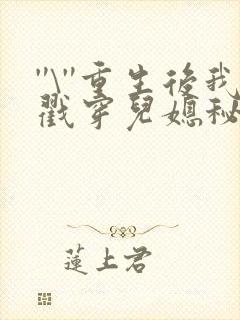 "\"重生後我
戳穿兒媳秘
蓮上君